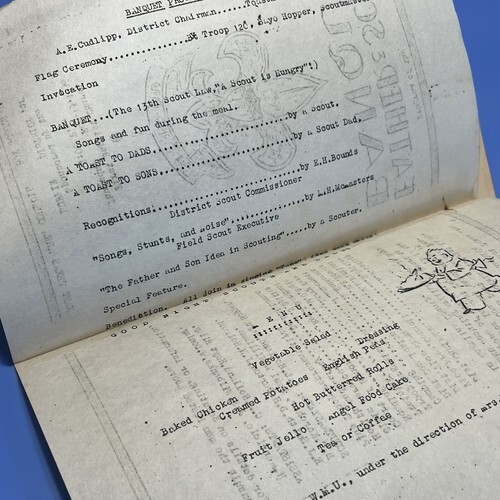 BANQUET
A.E.Cudlipp, District Chairman......
Flag Ceremony...............By Troop 126, Mayo Hopper, Scoutmaster
Invocation
BANQUET...(The 13th Scout Law,"A Scout is Hungry"!)
Songs and fun during the meal.
A TOAST TO DADS........................by a Scout.
A TOAST TO SONS........................by a Scout Dad.
Recognitions!..........................by E.H.Bounds
District Scout Commissioner
"Songs, Stunts, and Noise"..............by L.H.McMasters
Field Scout Executive
"The Father and Son Idea in Scouting".....by a Scouter.
Special Feature.
Benediction. All join in singing
GOOD NIGHT
MENU
Vegetable Salad Dressing
Baked Chicken English Peas
Creamed Potatoes Hot Butterred Rolls
Fruit Jello Angel Food Cake
Tea or Coffee
W.M.U., under the direction of Mrs.